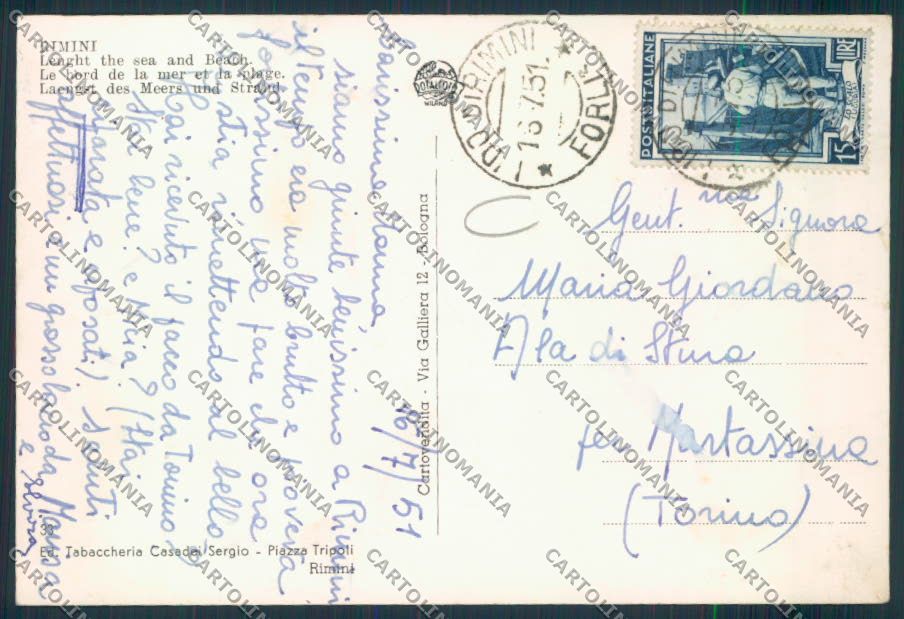 RIMINI
Lenght the sea and Beach.
Le nord de la mer et la plage.
Laengst des Meers und Strand.
DOTALFOTO
MILANO
RIMINI * FORLI
16.7.51.
POSTE ITALIANE
LIRE
15
16/7/51
Carissima Mamma,
siamo giunte benissimo a Rimini
il tempo era molto brutto e pioveva
fortissimo ma pare che ora
stia rimettendo al bello.
Hai ricevuto il pacco da Torino?
Stai bene? e Pucia? (Stai
a letto e riposati) Saluti
affettuosi e un grosso bacio da Marisa
e Silvia
Gent. ma Signora
Maria Giordano
Ala di Stura
per Martassina
(Torino)
Cartovendita - Via Galliera 12 - Bologna
33
Ed. Tabaccheria Casadei Sergio - Piazza Tripoli
Rimini
CARTOLINOMANIA